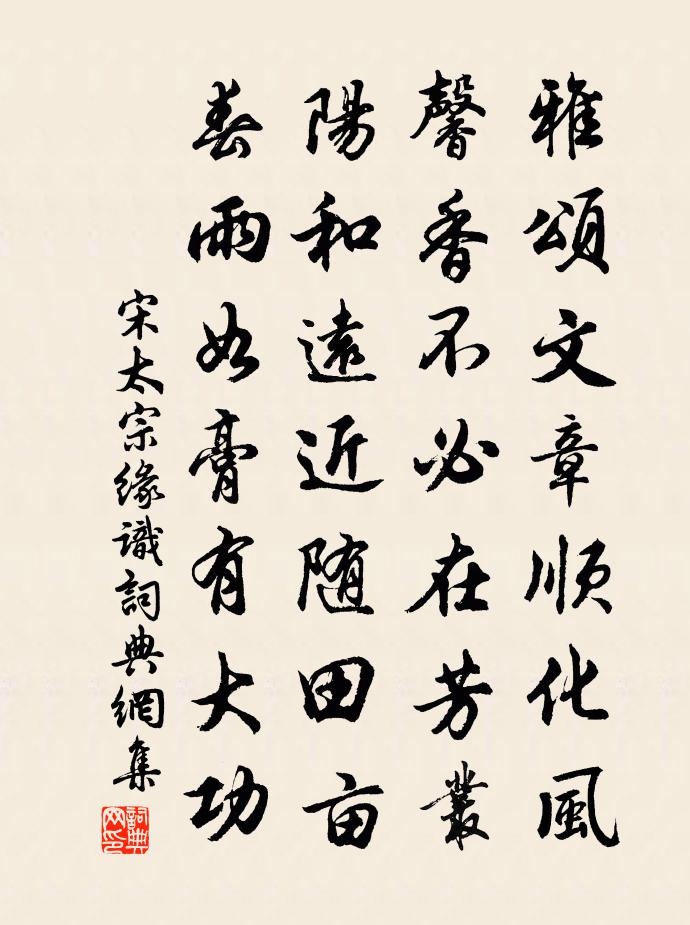 雅頌文章順化風
馨香不必在芳叢
陽和遠近随田亩
春雨如膏有大功
宋太宗緣識詞典網集
詞典网印